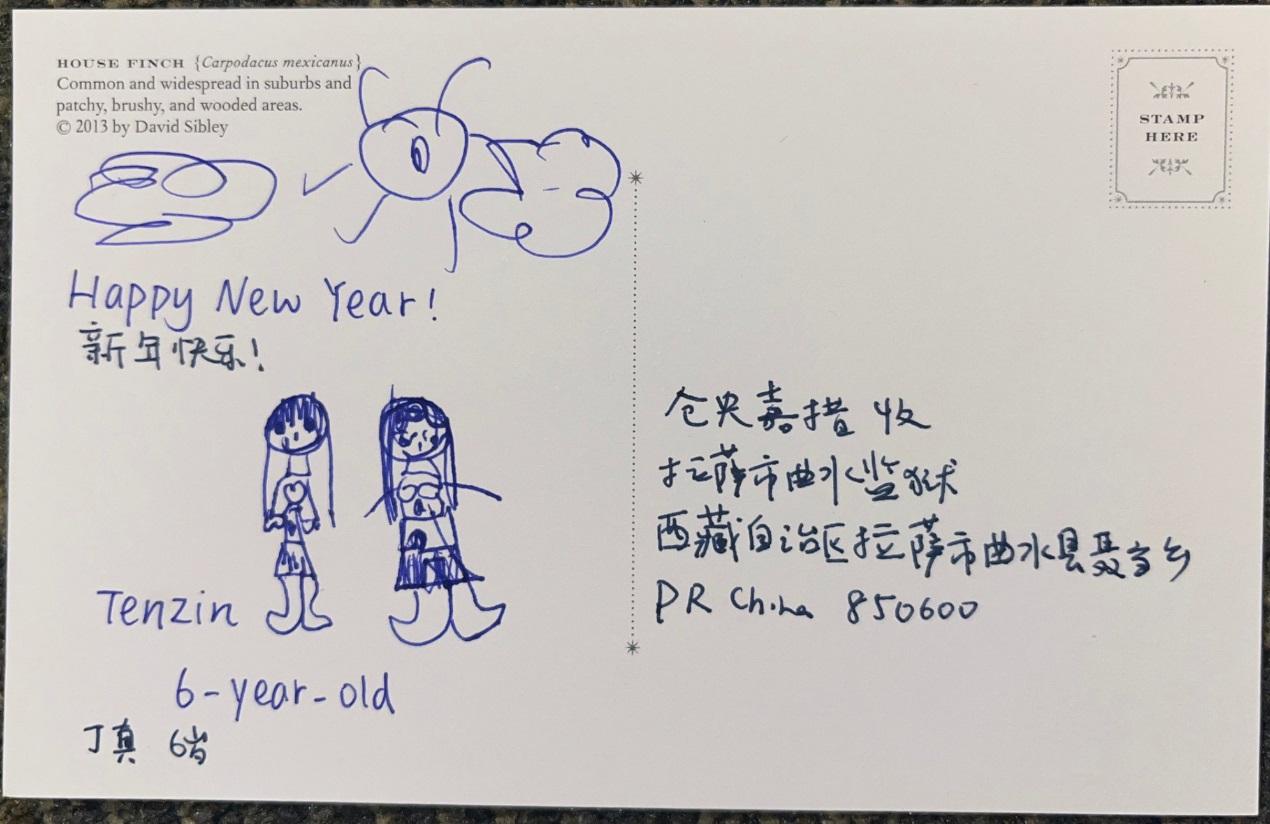 HOUSE FINCH {Carpodacus mexicanus}
Common and widespread in suburbs and
patchy, brushy, and wooded areas.
© 2013 by David Sibley
Happy New Year!
新年快乐!
Tenzin
6-year-old
丁真 6岁
STAMP
HERE
仓央嘉措 收
拉萨市曲水监狱
西藏自治区拉萨市曲水县聂当乡
PR China 850600